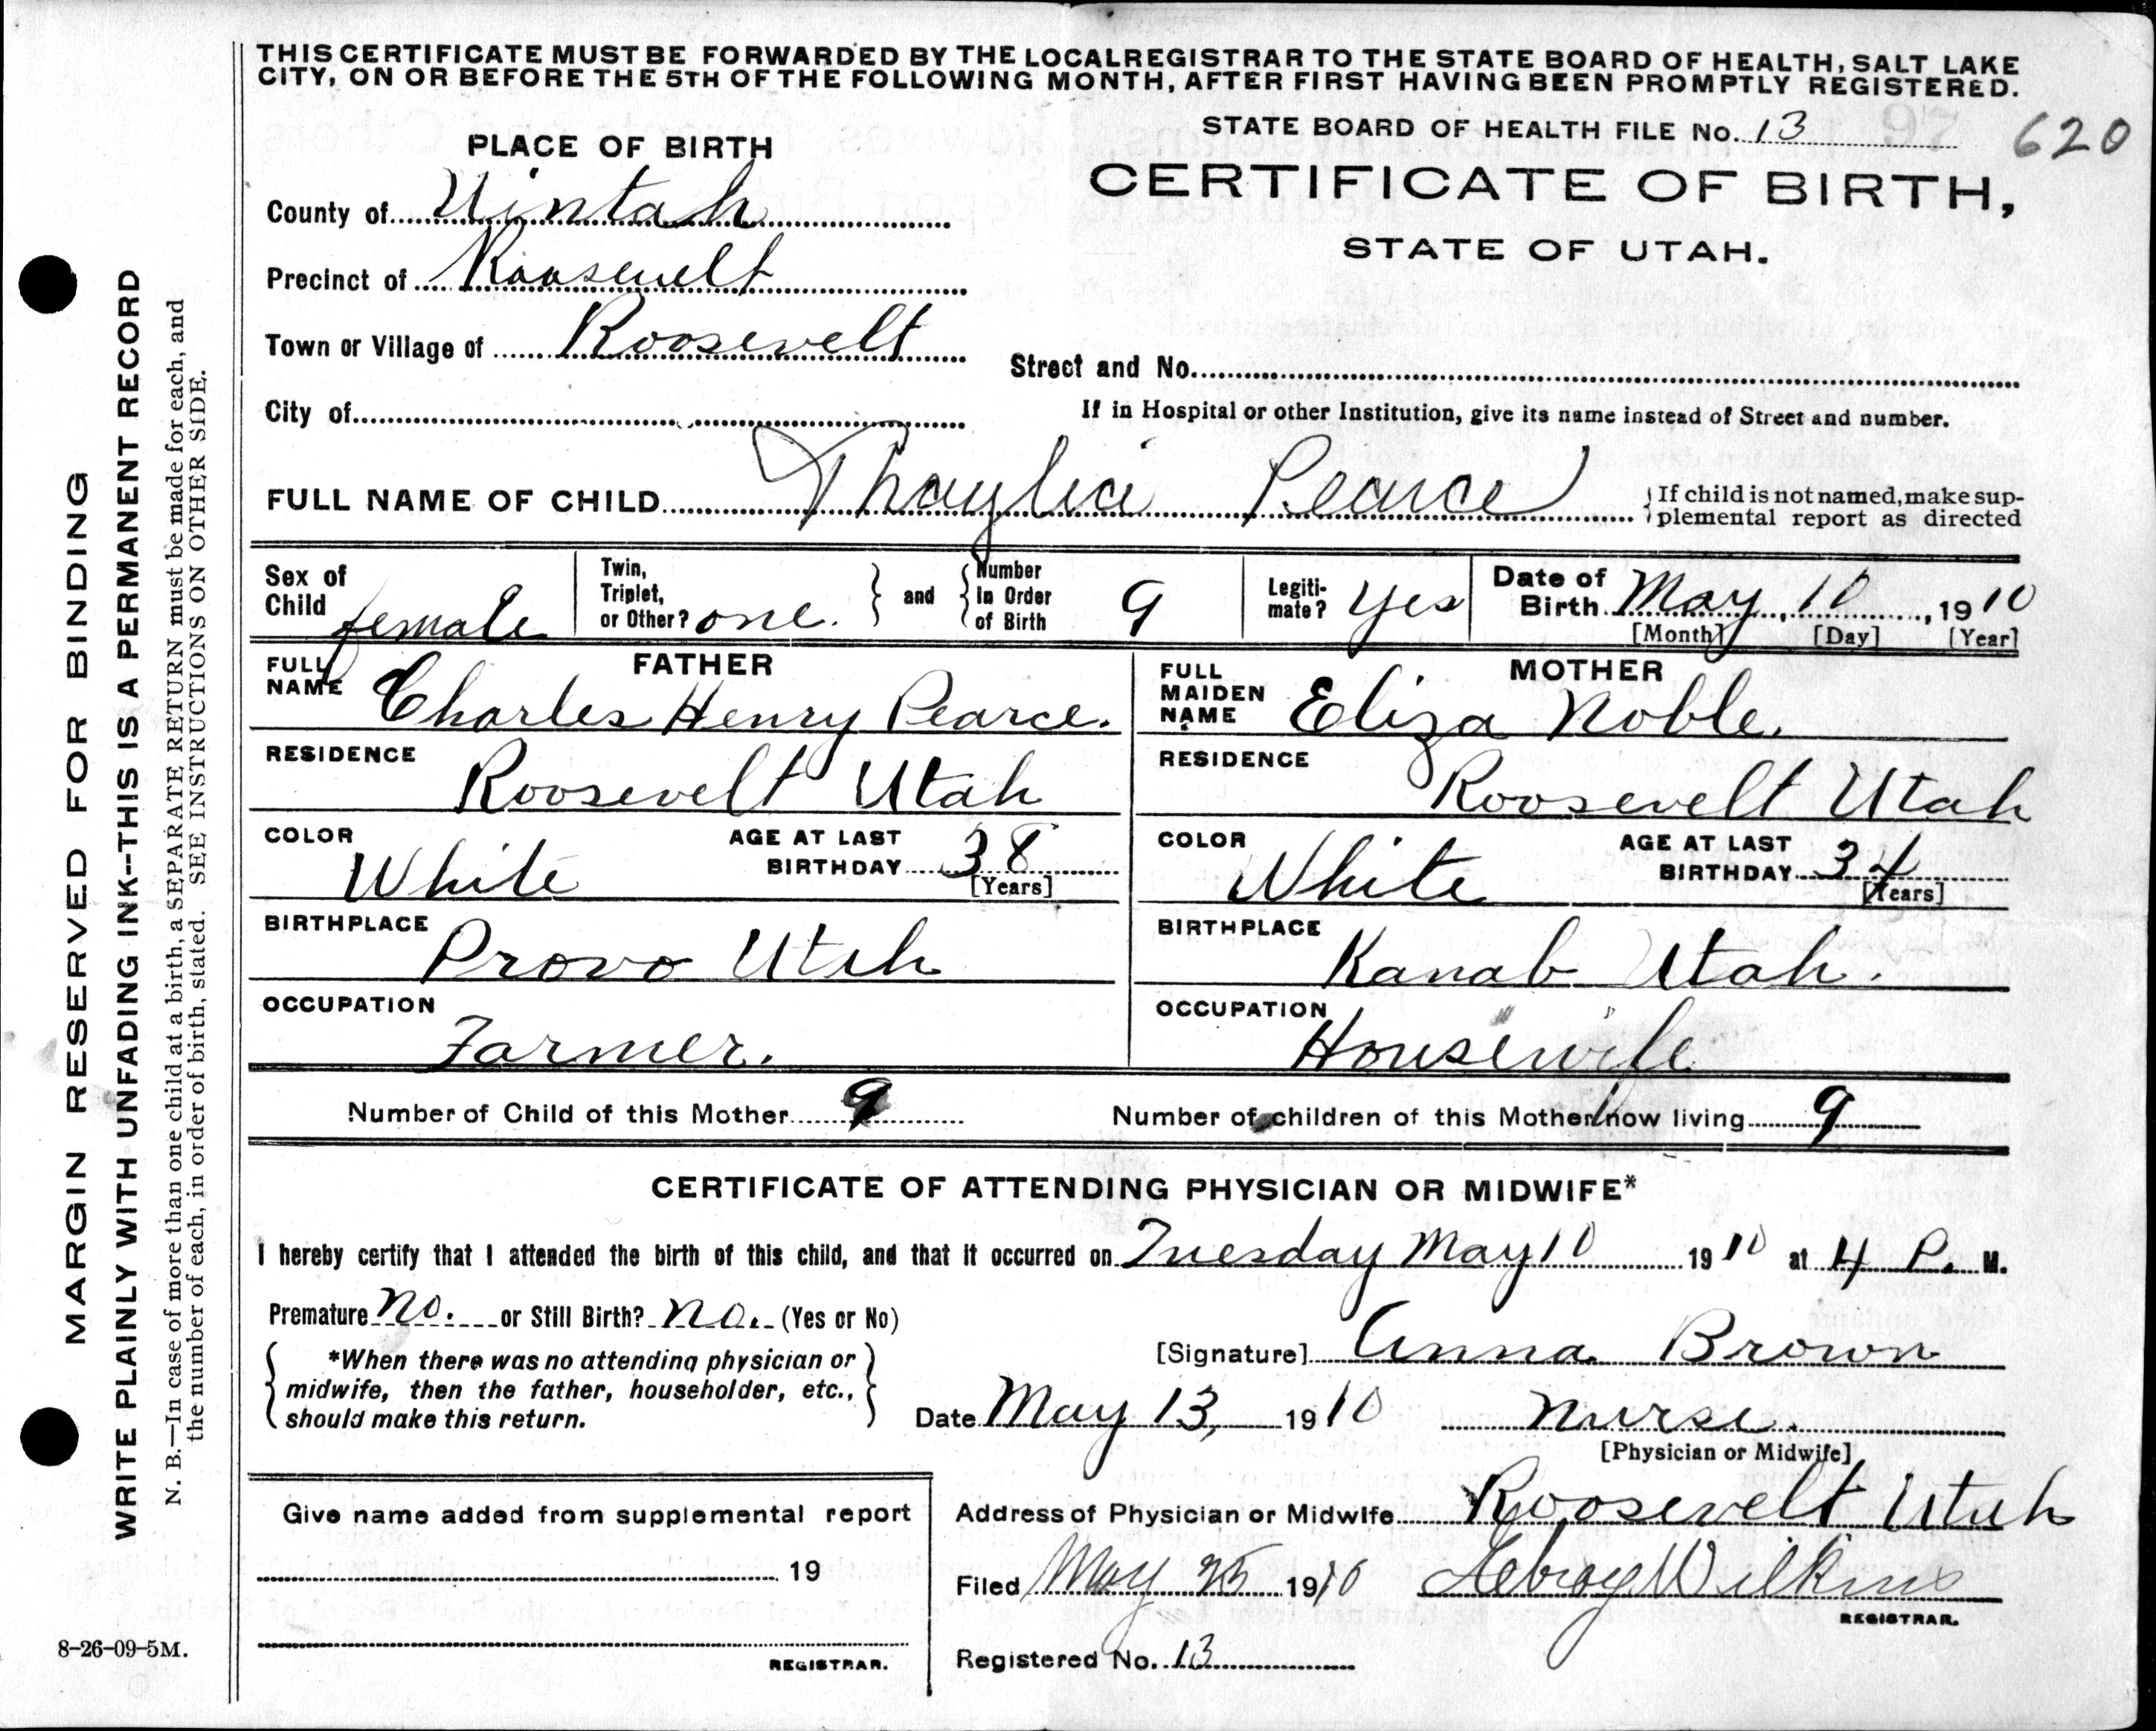 THIS CERTIFICATE MUST BE FORWARDED BY THE LOCAL REGISTRAR TO THE STATE BOARD OF HEALTH, SALT LAKE
CITY, ON OR BEFORE THE 5TH OF THE FOLLOWING MONTH, AFTER FIRST HAVING BEEN PROMPTLY REGISTERED.
STATE BOARD OF HEALTH FILE No. 13 97 620
PLACE OF BIRTH
CERTIFICATE OF BIRTH,
STATE OF UTAH.
County of Uintah
Precinct of Roosevelt
Town or Village of Roosevelt
Street and No.
City of
If in Hospital or other Institution, give its name instead of Street and number.
FULL NAME OF CHILD Thaylia Pearce
If child is not named, make sup-
plemental report as directed
Sex of Child female
Twin, Triplet, or Other? one.
and
Number in Order of Birth 9
Legiti-mate? yes
Date of Birth May, 10, 1910
[Month] [Day] [Year]
FATHER
FULL NAME Charles Henry Pearce.
RESIDENCE Roosevelt Utah
COLOR White
AGE AT LAST BIRTHDAY 38
[Years]
BIRTHPLACE Provo Utah
OCCUPATION Farmer.
MOTHER
FULL MAIDEN NAME Eliza Noble.
RESIDENCE Roosevelt Utah
COLOR White
AGE AT LAST BIRTHDAY 34
[Years]
BIRTHPLACE Kanab Utah.
OCCUPATION Housewife
Number of Child of this Mother 9
Number of children of this Mother now living 9
CERTIFICATE OF ATTENDING PHYSICIAN OR MIDWIFE*
I hereby certify that I attended the birth of this child, and that it occurred on Tuesday May 10 1910 at 4 P. M.
Premature no. or Still Birth? no. (Yes or No)
*When there was no attending physician or
midwife, then the father, householder, etc.,
should make this return.
[Signature] Anna Brown
Date May 13, 1910 Nurse.
[Physician or Midwife]
Give name added from supplemental report
19
REGISTRAR.
Address of Physician or Midwife Roosevelt Utah
Filed May 25 1910 Lebroy Wilkins
REGISTRAR.
Registered No. 13
8-26-09-5M.
MARGIN RESERVED FOR BINDING
WRITE PLAINLY WITH UNFADING INK--THIS IS A PERMANENT RECORD
N. B.—In case of more than one child at a birth, a SEPARATE RETURN must be made for each, and
the number of each, in order of birth, stated. SEE INSTRUCTIONS ON OTHER SIDE.